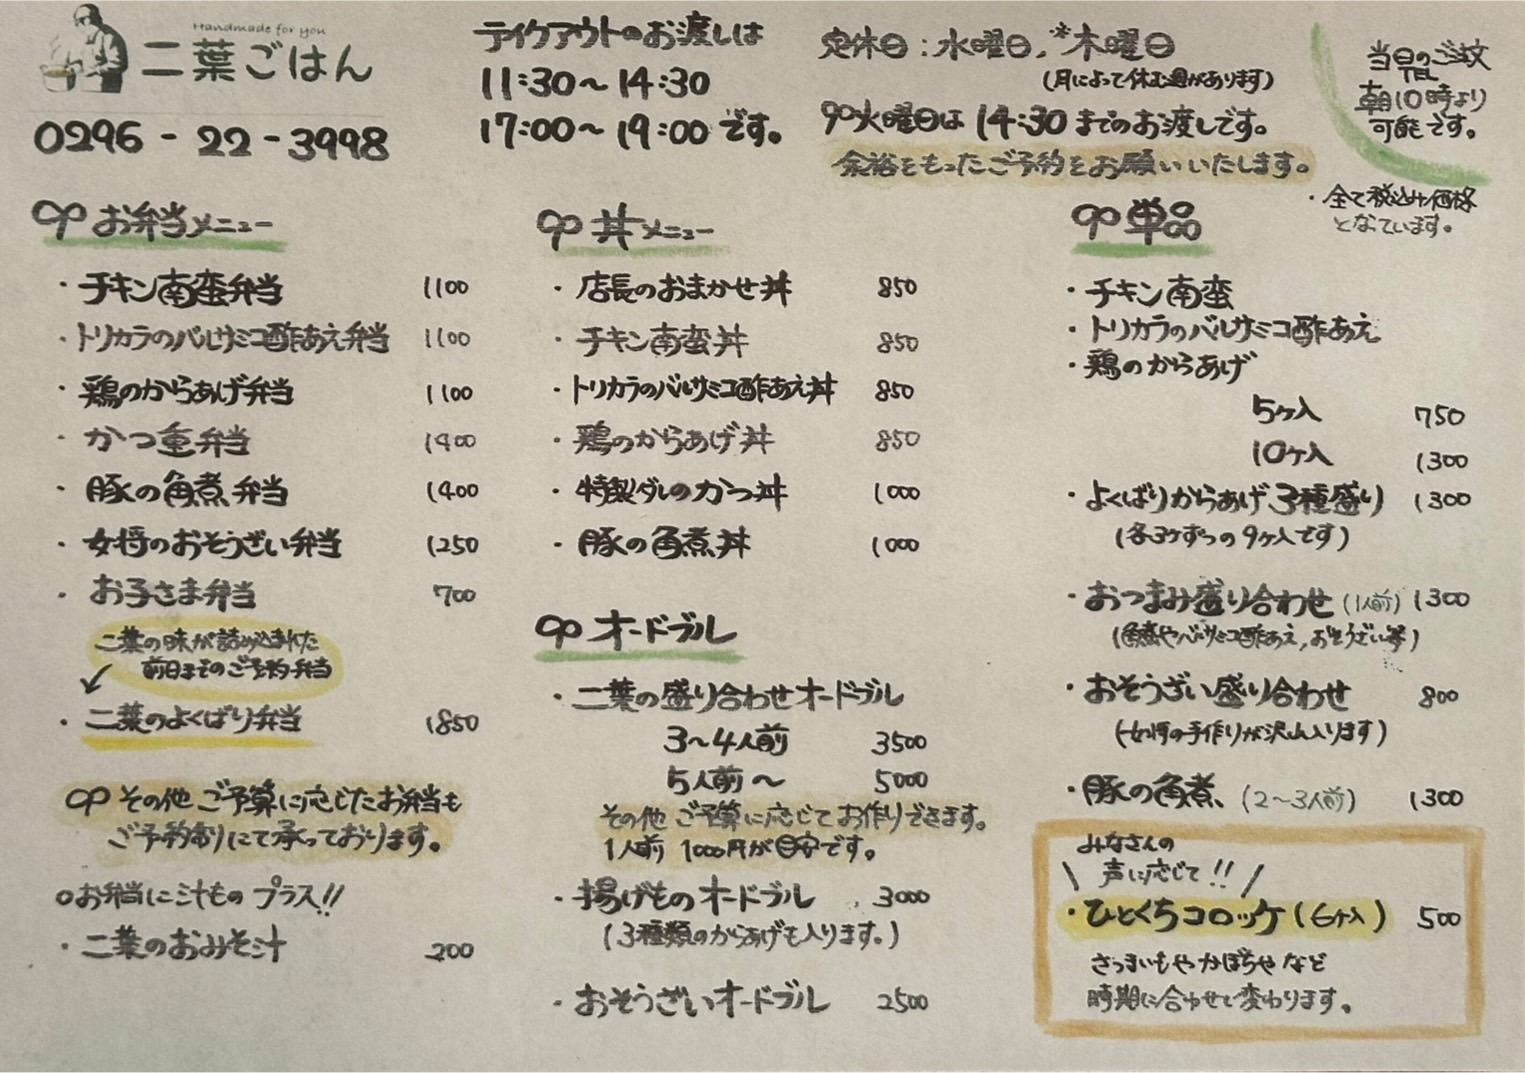 Handmade for you
二葉ごはん
0296-22-3998
テイクアウトのお渡しは
11:30〜14:30
17:00〜19:00です。
定休日:水曜日,*木曜日
(月によって休む週があります)
火曜日は14:30までのお渡しです。
余裕をもったご予約をお願いいたします。
当日のご注文
TEL
朝10時より
可能です。
・全て税込み価格
となっています。
お弁当メニュー
・チキン南蛮弁当 1100
・トリカラのバルサミコ酢あえ弁当 1100
・鶏のからあげ弁当 1100
・かつ重弁当 1400
・豚の角煮弁当 1400
・女将のおそうざい弁当 1250
・お子さま弁当 700
二葉の味が詰め込まれた
前日までのご予約弁当
・二葉のよくばり弁当 1850
その他ご予算に応じたお弁当も
ご予約制にて承っております。
○お弁当に汁ものプラス!!
・二葉のおみそ汁 200
丼メニュー
・店長のおまかせ丼 850
・チキン南蛮丼 850
・トリカラのバルサミコ酢あえ丼 850
・鶏のからあげ丼 850
・特製ダレのかつ丼 1000
・豚の角煮丼 1000
オードブル
・二葉の盛り合わせオードブル
3〜4人前 3500
5人前〜 5000
その他ご予算に応じてお作りできます。
1人前 1000円が目安です。
・揚げものオードブル 3000
(3種類のからあげも入ります。)
・おそうざいオードブル 2500
単品
・チキン南蛮
・トリカラのバルサミコ酢あえ
・鶏のからあげ
5ヶ入 750
10ヶ入 1300
・よくばりからあげ3種盛り 1300
(各3ケずつの9ヶ入です)
・おつまみ盛り合わせ(1人前) 1300
(角煮やバルサミコ酢あえ,おそうざい等)
・おそうざい盛り合わせ 800
(女将の手作りが沢山入ります)
・豚の角煮、(2〜3人前) 1300
みなさんの
\声に応じて!!/
・ひとくちコロッケ(6ヶ入) 500
さつまいもやかぼちゃなど
時期に合わせて変わります。